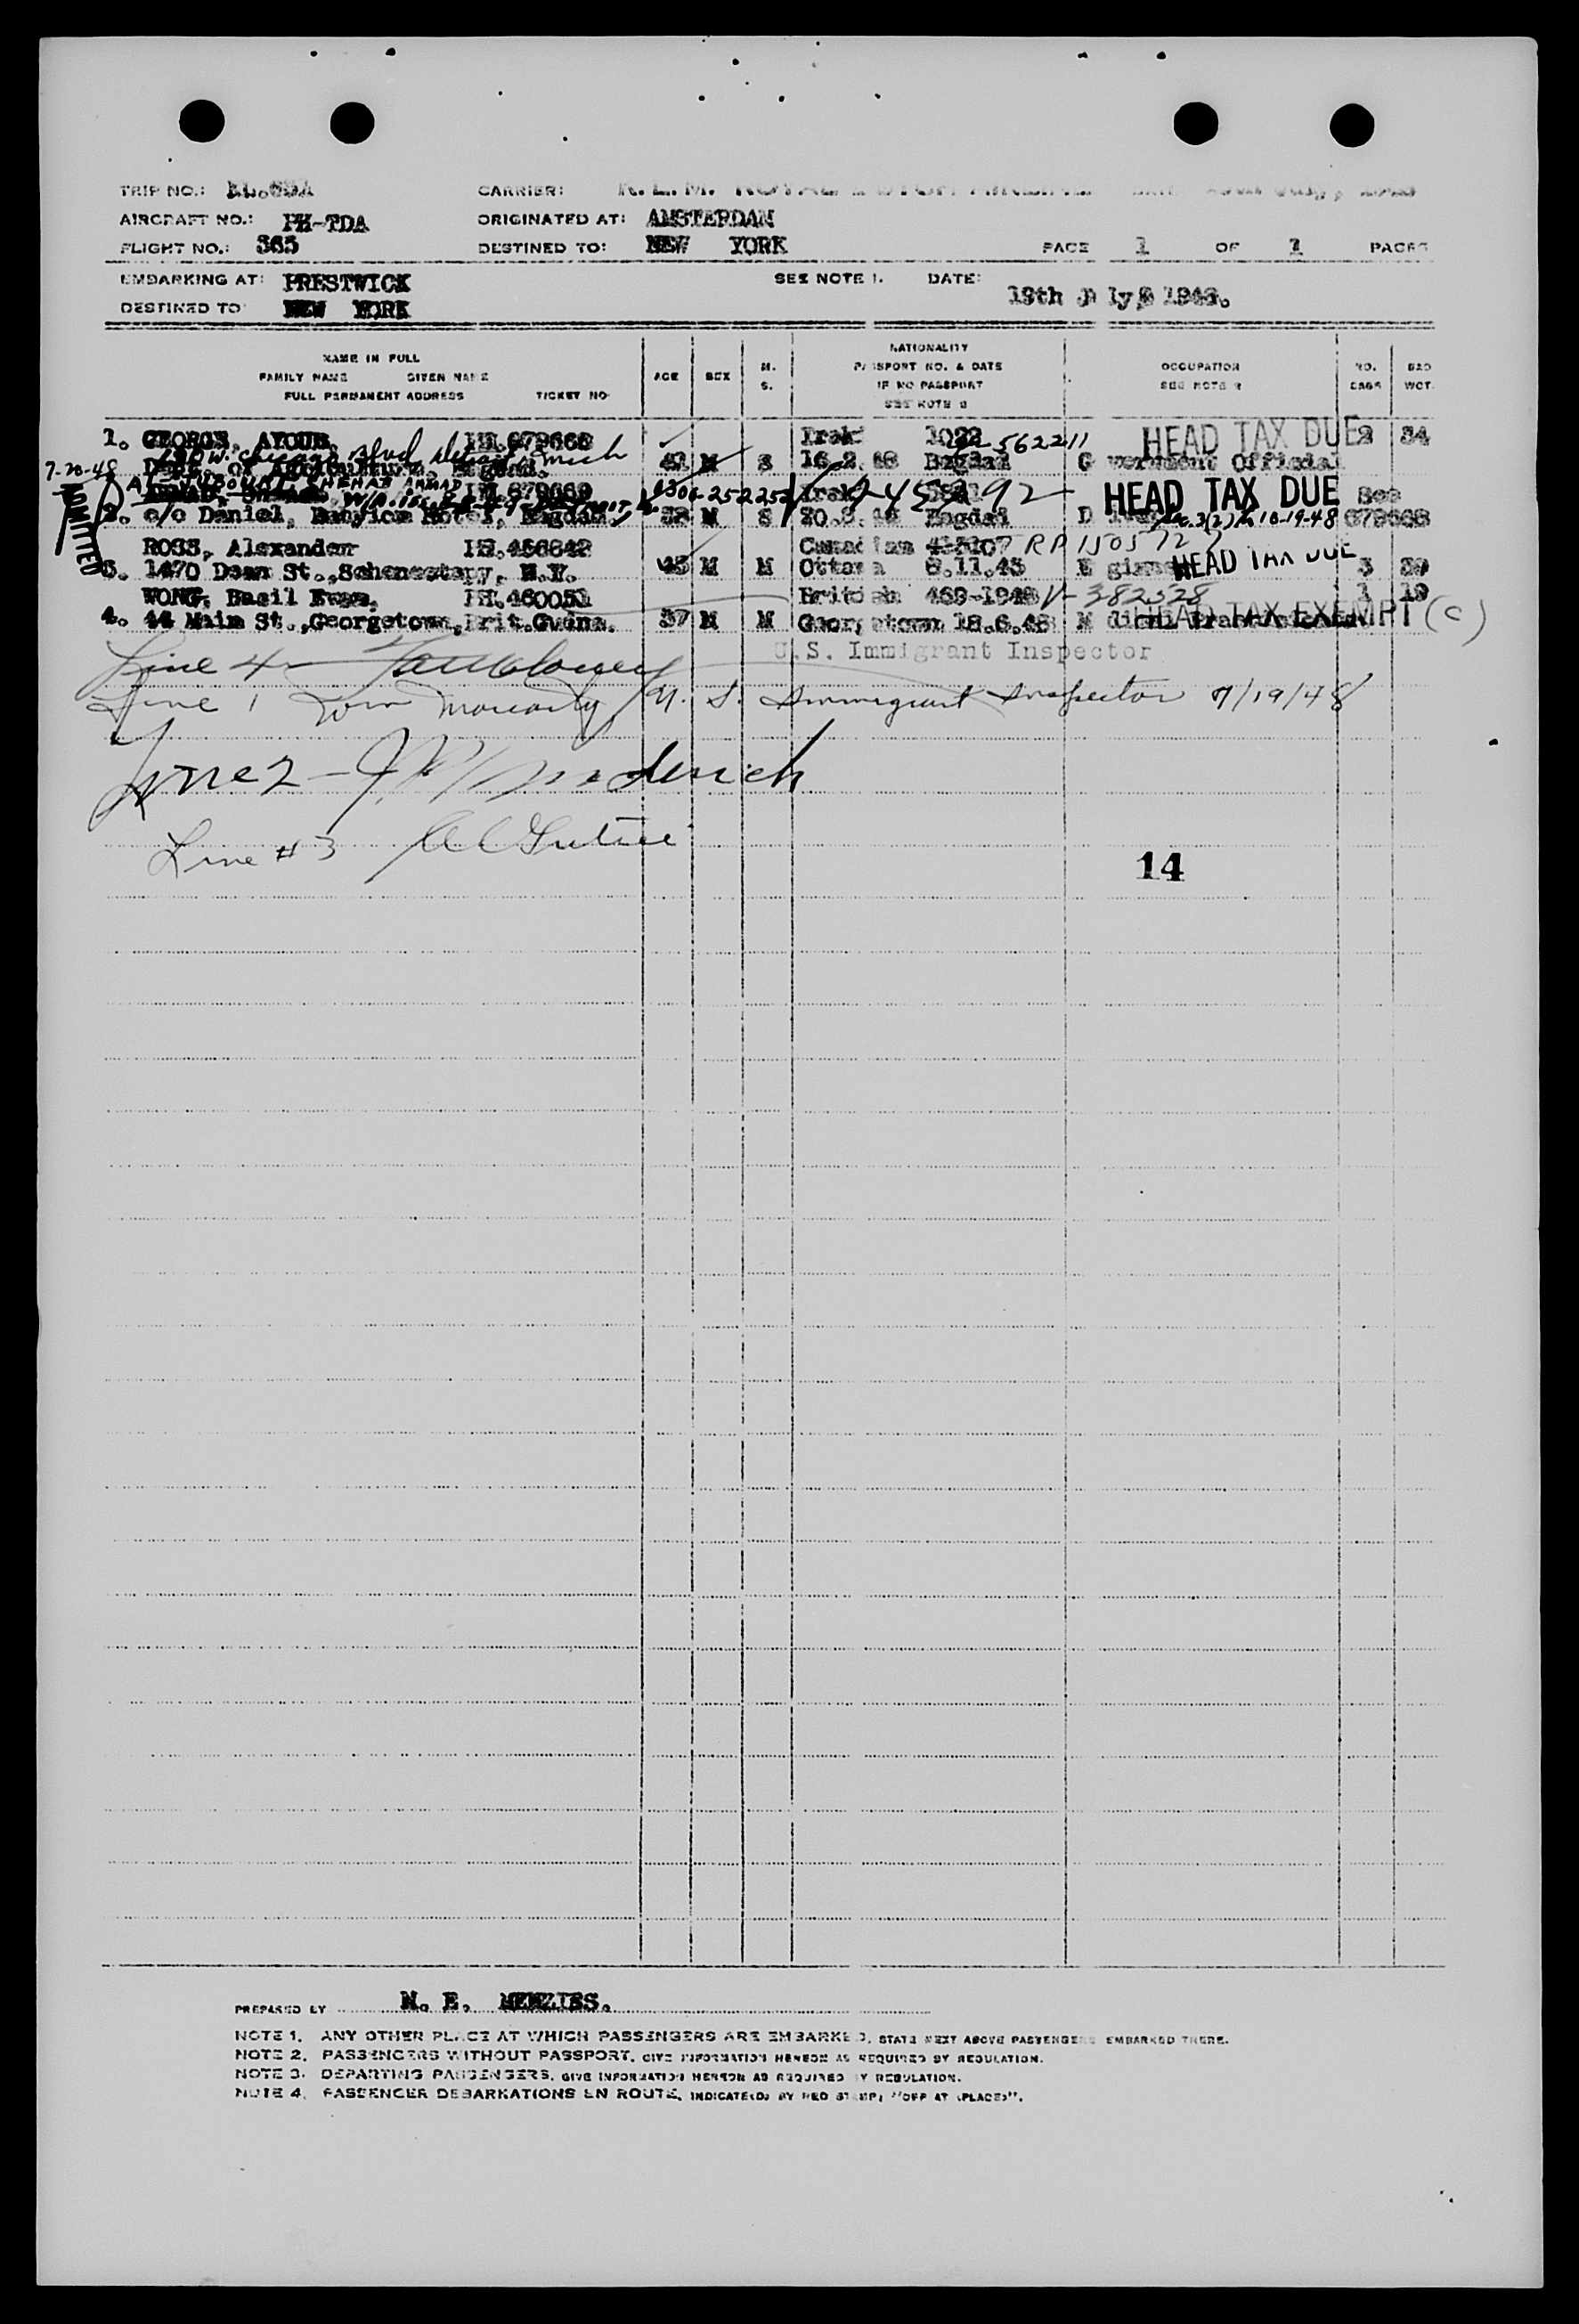 TRIP NO.: CARRIER: K.L.M. ROYAL DUTCH AIRLINES
AIRCRAFT NO.: PH-TDA ORIGINATED AT: AMSTERDAM
FLIGHT NO.: 365 DESTINED TO: NEW YORK PAGE 1 OF 1 PAGES
EMBARKING AT: PRESTWICK SEE NOTE 1. DATE: 19th July, 1948.
DESTINED TO NEW YORK
NAME IN FULL
FAMILY NAME GIVEN NAME
FULL PERMANENT ADDRESS TICKET NO
AGE SEX M. S.
NATIONALITY
PASSPORT NO. & DATE
IF NO PASSPORT
SEE NOTE 2
OCCUPATION
SEE NOTE 2
NO. BAGS BAG WGT.
1. GEORGE, AYOUB. Iraki 1022 562211 HEAD TAX DUE 2 34
Chicago Blvd Detroit Mich
7-20-48 Dept. of Agriculture, Bagdad. 41 M S 16.2.48 Bagdad Government Official
ADMITTED AL-JUBOURI SHEHAB AHMAD 92 HEAD TAX DUE See
2. c/o Daniel, Babylon Hotel, Bagdad. 32 M S Bagdad 10-19-48 679668
ROSS, Alexander Canadian RP 150572
3. 1470 Dean St., Schenectady, N.Y. 45 M M Ottawa 6.11.45 Engineer HEAD TAX DUE 3 39
WONG, Basil Evan. British 469-1948 V-382528 1 19
4. 44 Main St., Georgetown, Brit. Guina. 37 M M Georgetown 18.6.48 HEAD TAX EXEMPT (C)
U.S. Immigrant Inspector
Line 4
Line 1 Tom Moriarty U. S. Immigrant Inspector 7/19/48
Line 2 -
Line # 3
14
PREPARED BY N. E. MENZIES.
NOTE 1. ANY OTHER PLACE AT WHICH PASSENGERS ARE EMBARKED, STATE NEXT ABOVE PASSENGERS EMBARKED THERE.
NOTE 2. PASSENGERS WITHOUT PASSPORT, GIVE INFORMATION HEREON AS REQUIRED BY REGULATION.
NOTE 3. DEPARTING PASSENGERS, GIVE INFORMATION HEREON AS REQUIRED BY REGULATION.
NOTE 4. PASSENGER DEBARKATIONS EN ROUTE, INDICATE(D) BY RED STAMP; "OFF AT (PLACE)".